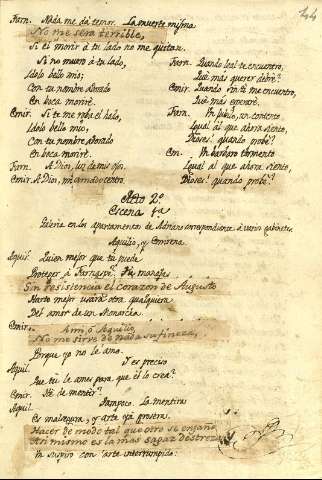 44
Farn. Nada me da temor. La muerte misma
No me sera terrible,
Si el morir à tu lado no me quitase.
Si no muero à tu lado,
Idolo bello mio;
Con tu nombre adorado
En boca moriré.
Emir. Si te me roba el hado,
Idolo bello mio,
Con tu nombre adorado
En boca moriré.
Farn. A Dios, luz de mis ojos.
Emir. A Dios, mi amado centro.
Farn. Quando leal te encuentro,
Què mas querer debrè?
Emir. Quando fin te me encuentro,
Què mas
Farn. Un contento
Igual al que ahora siento,
Dioses! quando probè?
Em. Un barbaro tormento
Igual al que ahora siento,
Dioses! quando probè?
Acto 2º
Escena 1ª
Galeria en los apartamentos de Adriano correspondiente à varios gabinetes
Aquilio, y Emirena
Aquil. Quien mejor que tu puede
Proteger à Farnaspe? Tu manejas
Sin resistencia el corazon de Augusto
Harto mejor usará otra qualquiera
Del amor de un Monarca.
Emir. Ami, ò Aquilio,
No me sirve de nada su fineza,
Porque yo no le amo.
Aquil. Y es preciso
Que tu le ames para que el lo crea?
Emir. Hè de mentir?
Aquil. Tampoco. La mentira
Es mal segura, y arte ya grosera.
Hacer de modo tal que otro se engañe
Asi mismo es la mas sagaz destreza.
Un suspiro con arte interrumpido: